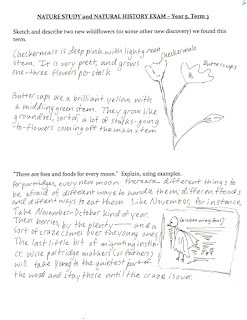 NATURE STUDY and NATURAL HISTORY EXAM – Year 5, Term 3
Sketch and describe two new wildflowers (or some other new discovery) we found this
term.
Checkermalo is deep pink with light green
stem. It is very preet, and grows
one-three flowers per stalk
checkermalo
Buttercups
Buttercups are a brilliant yellow with
a middling green stem. They grow like
groundsel, sort of, a lot of stalks-going
to-flowers coming off the main stem
"There are foes and foods for every moon." Explain, using examples.
For partridges, every new moon there are different things to
be afraid of different ways to handle them; different foods
will different ways to eat them. Like November, for instance,
Take November-October kind of year.
Then berries by the plenty and a
sort of craze comes over the young ones.
The last little bit of migrating instin-
ct. Wise partridge mothers (or fathers)
will take young to the quietest part of
the wood and stay there until the craze is over.
(broken wing for)